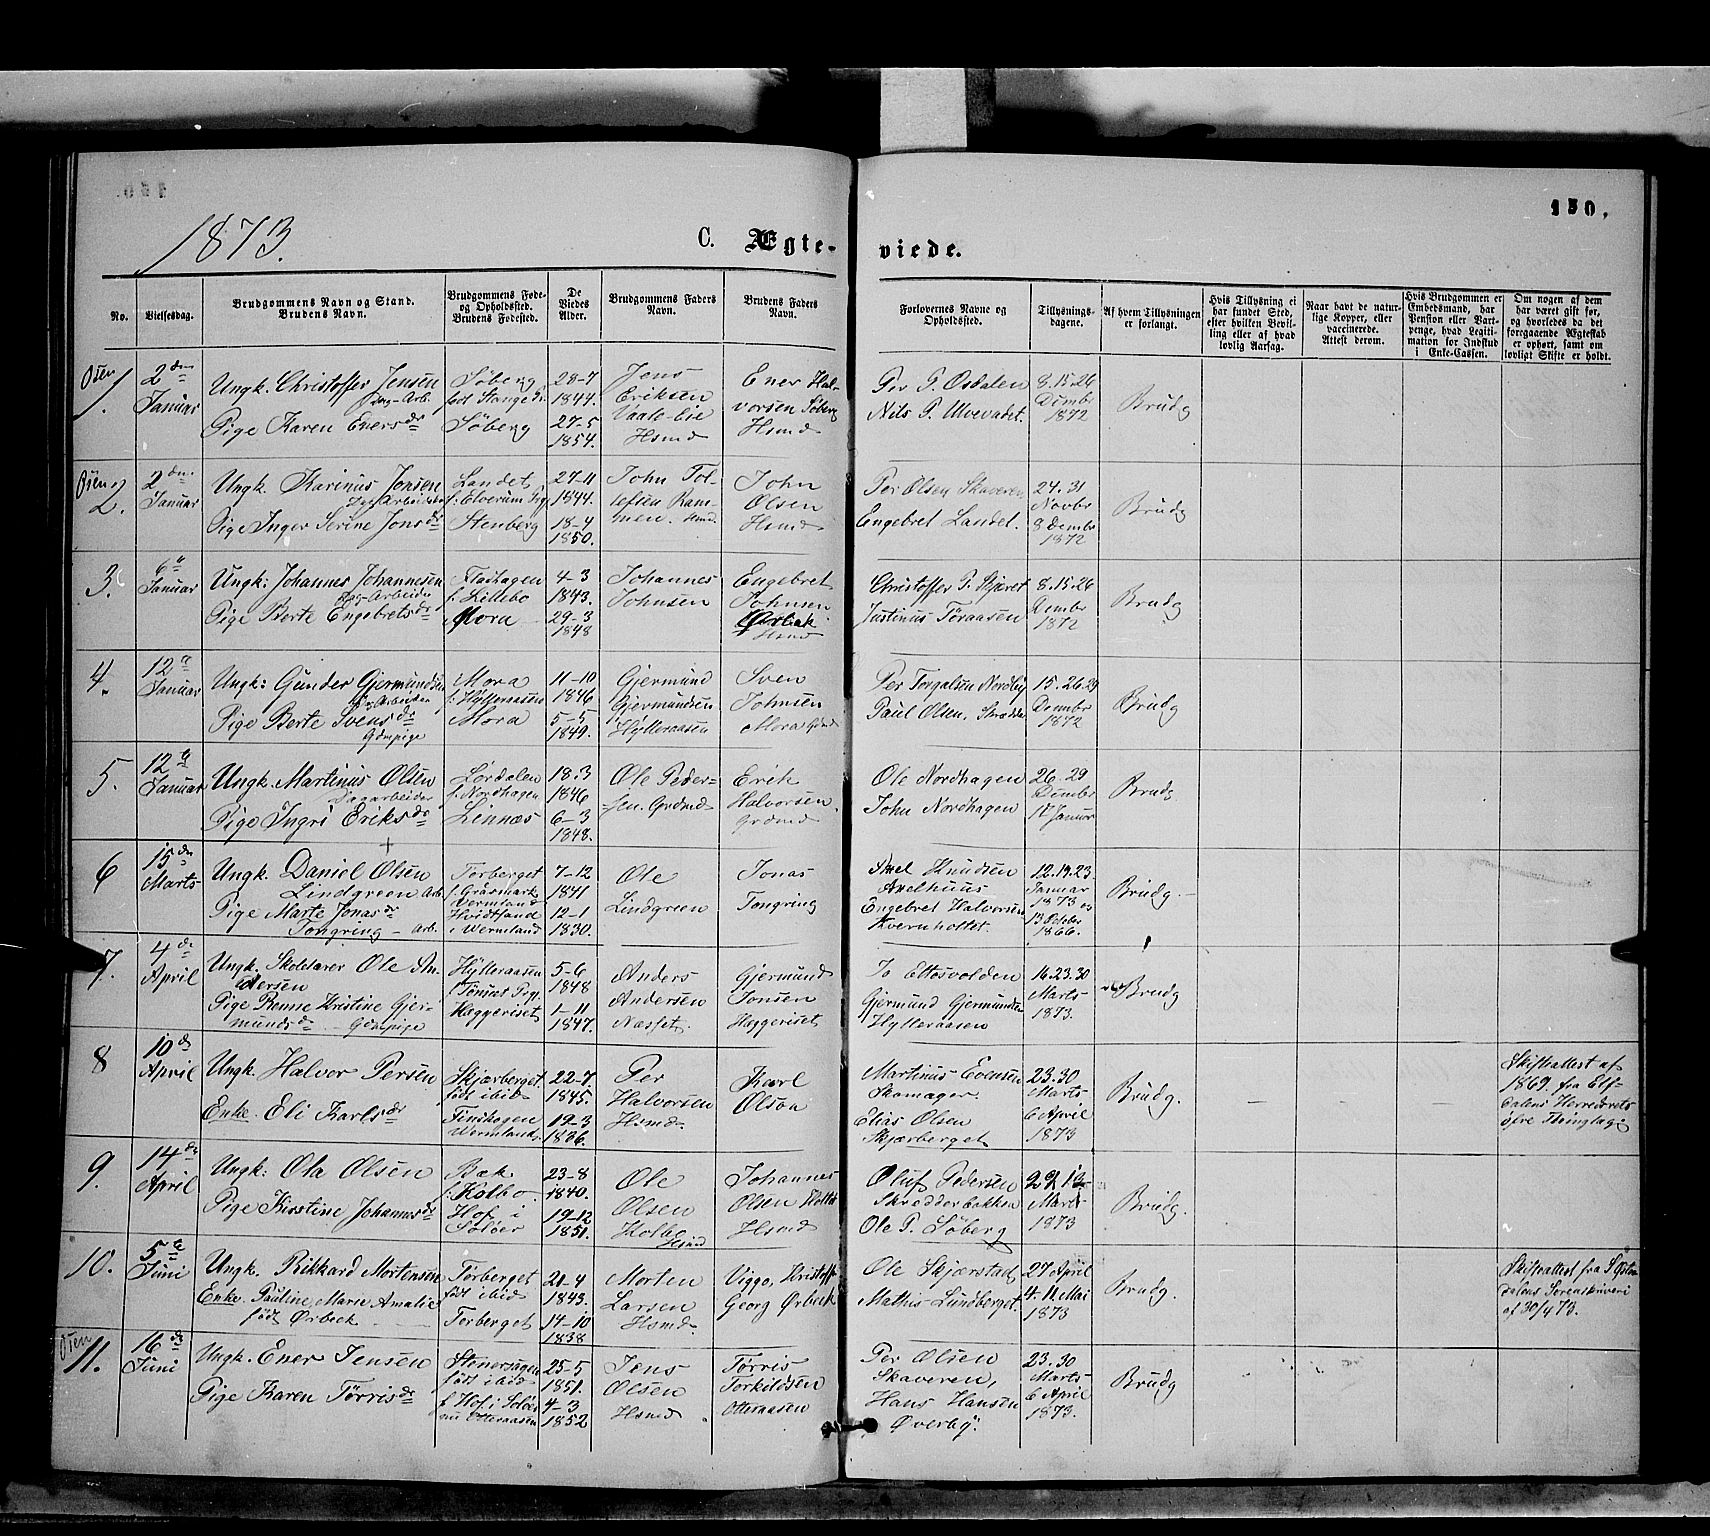 150.
1873.
C. Ægte-
viede.
No.
Vielsesdag.
Brudgommens Navn og Stand.
Brudens Navn.
Brudgommens Føde-
og Opholdssted.
Brudens Fødested.
De
Viedes
Alder.
Brudgommens Faders
Navn.
Brudens Faders
Navn.
Forlovernes Navne og
Opholdssted.
Tillysnings-
dagene.
Af hvem Tillysningen
er forlangt.
Hvis Tillysning ei
har fundet Sted,
efter hvilken Bevil-
ling eller af hvad
lovlig Aarsag.
Naar havt de natur-
lige Kopper, eller
vaccinerede.
Attest derom.
Hvis Brudgommen er
Embedsmand, har
Pension eller Vart-
penge, hvad Legiti-
mation for Indskud
i Enke-Cassen.
Om nogen af dem
har været gift før,
og hvorledes da det
foregaaende Ægteskab
er ophørt, samt om
lovligt Skifte er holdt.
Osen
1.
2den
Januar
Ungk. Christoffer Jensen
Dag-Arb.
Pige Karen Enersdr
Søberg
født Stange
Søberg
28-7
1844.
27-5
1854.
Jens
Eriksen
Vaale-Eie
Hsmd
Ener Hal-
vorsen Søberg
Hsmd
Per P. Osdalen
Nils P. Ulvevadet.
8.15.26
Dembr
1872
Brudg
Osen
2.
2den
Januar
Ungk. Karinus Jonsen
Dag-Arbeider
Pige Inger Serine Jonsdr
Landet,
f. Elverum Prg
Stenberg
27-11
1844.
18-4
1850.
John Tol-
lefsen Ram-
men. Hsmd.
John
Olsen
Hsmd
Per Olsen Skaveren
Engebret Landet.
24.31
Novbr
8 Dembr
1872
Brudg
3.
6te
Januar
Ungk: Johannes Johannesen
Dag-Arbeider
Pige Berte Engebretsdr
Flashagen
f. Lillebo
Mora
4-3
1843.
29-3
1848
Johannes
Johnsen
Engebret
Johnsen
Hsmd
Christoffer P. Kjæret
Justinus Tøraasen
8.15.26
Dembr
1872
Brudg
4.
12te
Januar
Ungk: Gunder Gjermundsen
Dag-Arbeider
Pige Berte Svensdr
Gdmpige
Mora
f. Hylleraasen
Mora
11-10
1846
5-5
1849.
Gjermund
Gjermundsen
Hylleraasen
Sven
Johnsen
Mora Gdmd
Per Torgalsen Nordby
Paul Olsen, Skrædder
15.26.29
Dembr
1872
Brudg
5.
12te
Januar
Ungk. Martinus Olsen
Dagarbeider
Pige Ingri Eriksdr
Lørdalen
f. Nordhagen
Linnæs
18-3
1846
6-3
1848.
Ole Peder-
sen. Grdmd
Erik
Halvorsen
Grdmd
Ole Nordhagen
John Nordhagen
26.29
Dembr
17 Januar
Brudg.
6
15de
Marts
Ungk. Daniel Olsen
Lindgreen Arb.
Pige Marte Jonasdr
Tongring - Arb.
Torberget
f. Gräsmark
Vermland
Hvidtsand
i Wermland
7-12
1841
12-1
1830.
Ole
Lindgreen
Jonas
Tongring
Axel Knudsen
Axelhuus
Engebret Halvorsen
Kvernholtet.
12.19.23.
Januar
1873 og
13 October
1866.
Brudg.
7.
4de
April
Ungk. Skolelærer Ole An-
dersen
Pige Renne Kristine Gjer-
mundsdr Gdmpige
Hylleraasen
f. Tønset Prgj.
Heggeriset
5-6
1848
1-11
1847.
Anders
Andersen
Næsset.
Gjermund
Jonsen
Heggeriset
Jo Eltosvolden
Gjermund Gjermundsen
Hylleraasen
16.23.30
Marts
1873.
Brudg
8
10de
April
Ungk. Halvor Persen
Enke. Eli Karlsdr
Skjærberget.
født ibid
Finskogen
Wermland.
22-7
1845.
19-3
1836.
Per
Halvorsen
Hsmd.
Karl
Olson
Martinus Evensen
Skomager.
Elias Olsen
Skjærberget
23.30
Marts
6 April
1873
Brudg.
Skifteattest af
1869. fra Elf-
dalens Herredsrets
øfre Thinglag.
9.
14de
April
Ungk: Ola Olsen
Pige Kirstine Johannesdr
Bæk.
f. Kolbo.
Hof i
Soløer
23-8
1840.
19-12
1851.
Ole
Olsen
Kolbo
Hsmd
Johannes
Olsen
Hsmd
Oluf Pedersen
Skredderbakken
Ole P. Søberg
Marts
1873
Brudg.
10.
5te
Juni
Ungk. Rikkard Mortensen
Enke. Pauline Marie Amalie
født Ørbeck
Torberget
født ibid
Torberget
21-4
1843.
14-10
1838
Morten
Larsen
Hsmd.
Viggo, Kristoffer
Georg Ørbeck
Ole Skjærstad
Mathis Lundberget.
27 April
4.11. Mai
1873
Brudg.
Skifteattest fra S Østen-
dalens Sorenskriveri
af 30/4 73.
Osen
11.
16de
Juni
Ungk. Ener Jensen
Pige Karen Tørrisdr
Stenersagen
født ibid
f. Hof i Soløer
nu Otteraasen
25-5
1851.
4-3
1852
Jens
Olsen
Hsmd.
Tørris
Torkildsen
Otteraasen
Per Olsen
Skaveren,
Hans Hansen
Øverby.
23.30
Marts
6 April
1873.
Brudg